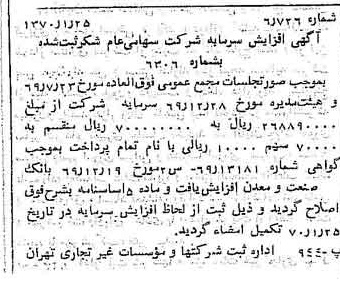 شماره ۶٫۷۲۶ ۱۳۷۰٫۱٫۲۵
آگهی افزایش سرمایه شرکت سهامی عام شکر ثبت شده
بشماره ۶۳۰۶
بموجب صورتجلسات مجمع عمومی فوق‌العاده مورخ ۶۹٫۷٫۲۳
و هیئت‌مدیره مورخ ۶۹٫۱۲٫۲۸ سرمایه شرکت از مبلغ
۲۶۸۸۹۰۰۰۰ ریال به ۷۰۰۰۰۰۰۰۰ ریال منقسم به
۷۰۰۰۰ سهم ۱۰۰۰۰ ریالی با نام تمام پرداخت بموجب
گواهی شماره ۶۹٫۱۳۱۸۱- س۲ مورخ ۶۹٫۱۲٫۱۹ بانک
صنعت و معدن افزایش یافت و ماده ۵ اساسنامه بشرح فوق
اصلاح گردید و ذیل ثبت از لحاظ افزایش سرمایه در تاریخ
۷۰٫۱٫۲۵ تکمیل امضاء گردید.
پ-۹۴۴ اداره ثبت شرکتها و مؤسسات غیر تجاری تهران